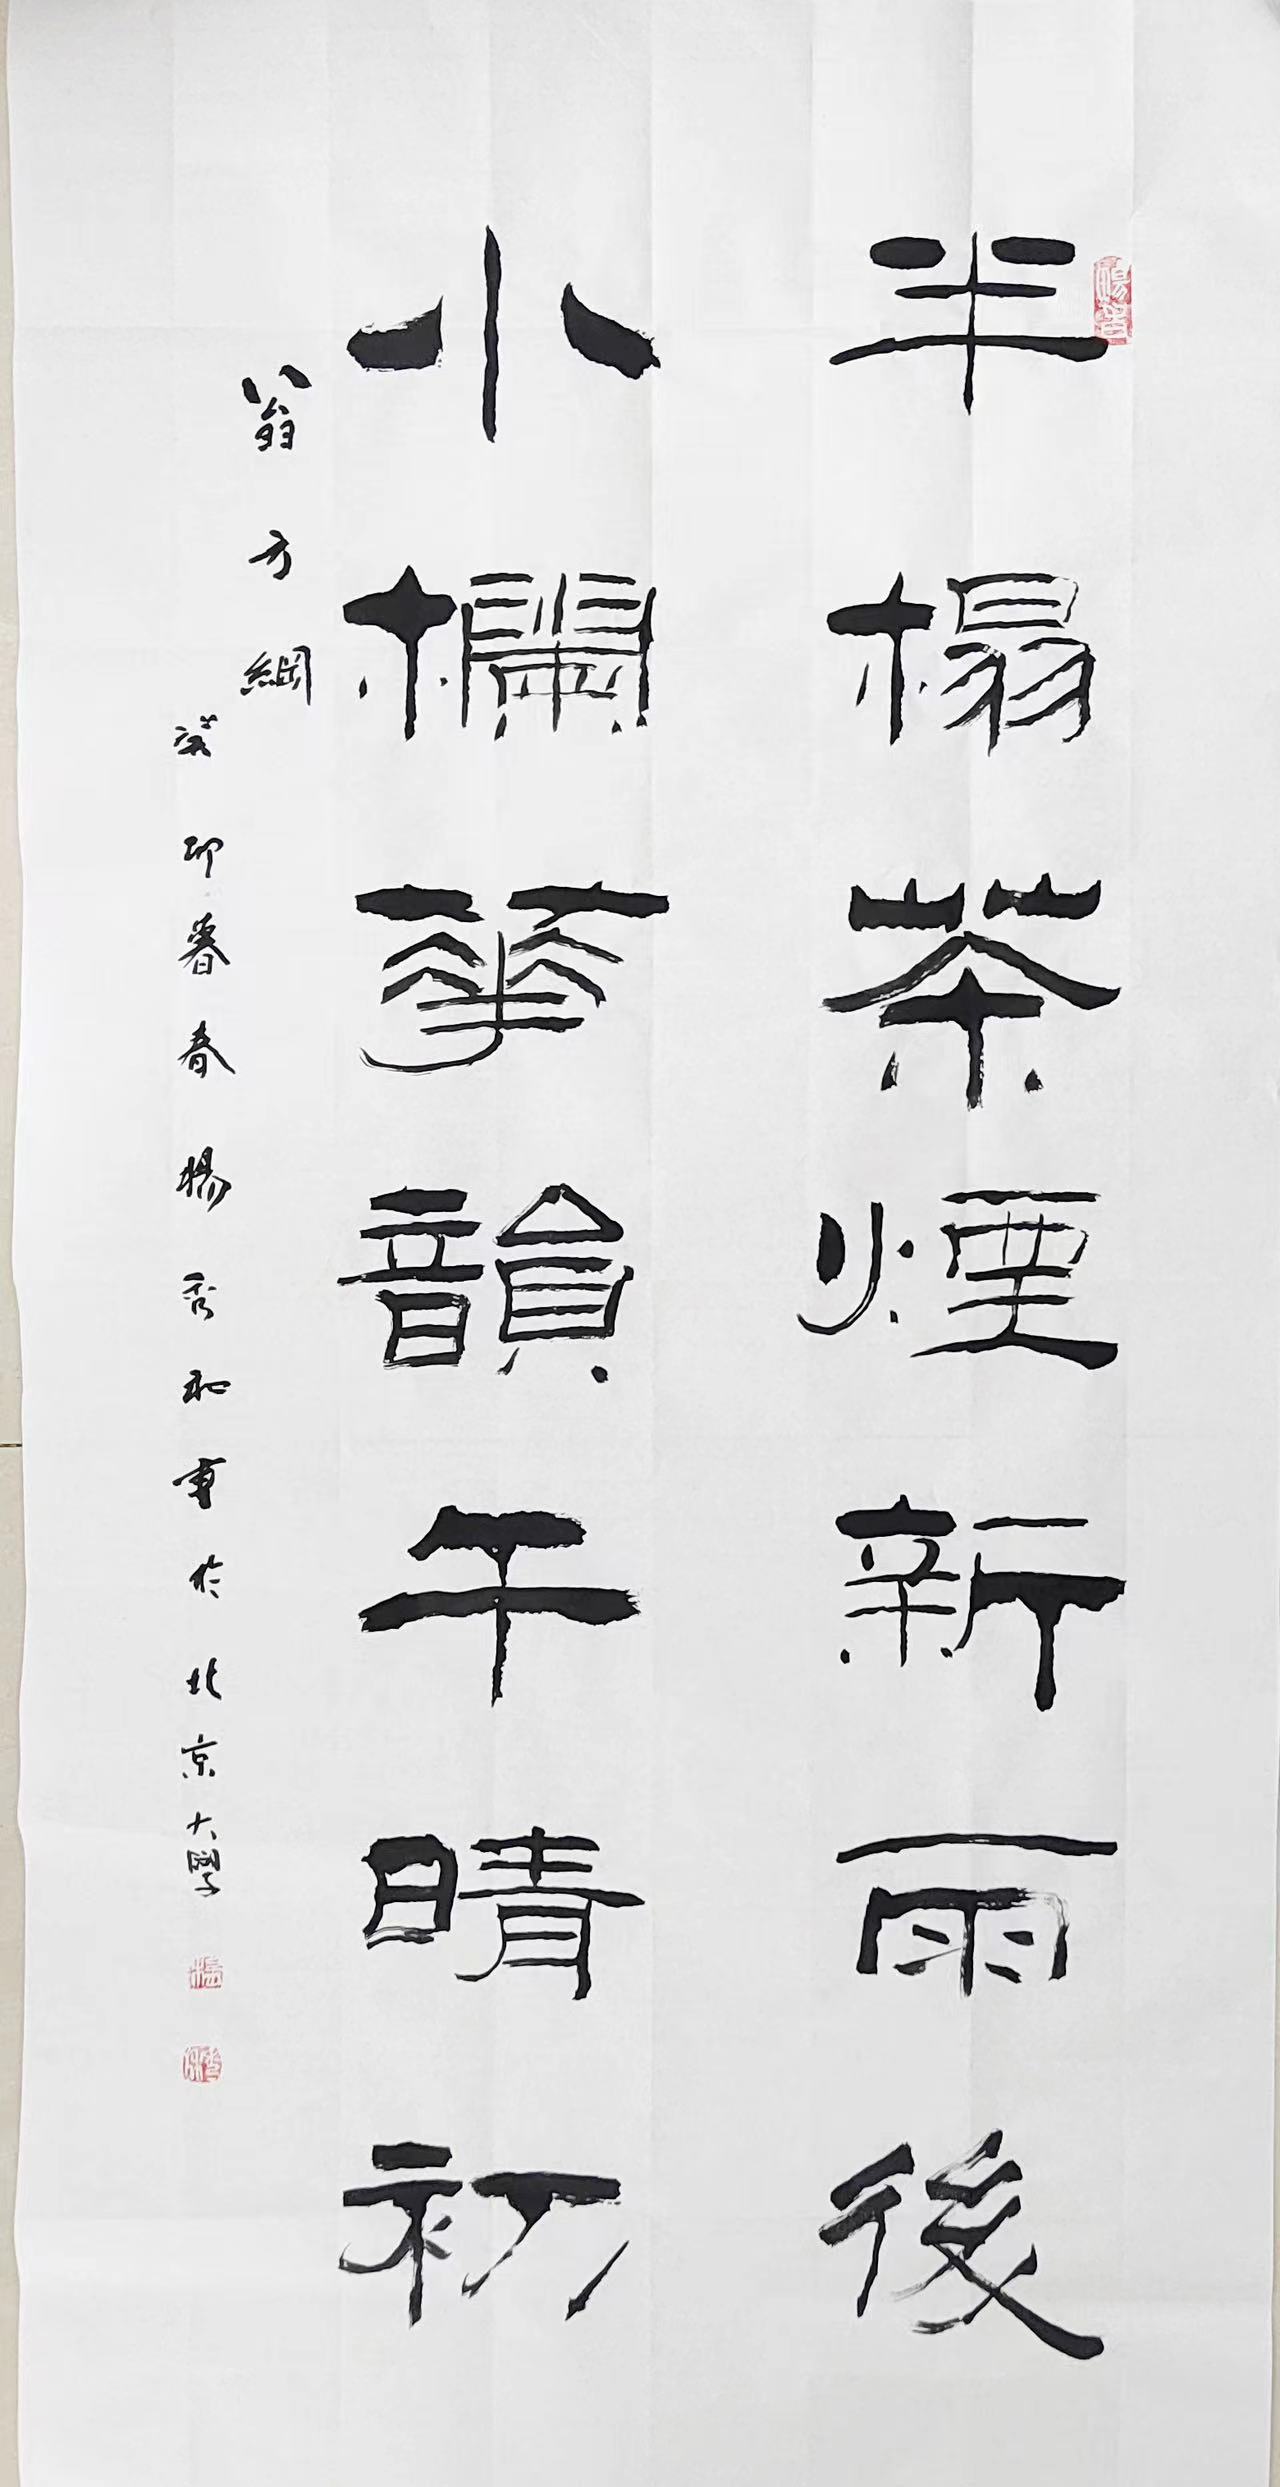 半榻茶煙新雨後
小欄華韻午晴初
翁方綱
癸卯暮春楊秀和書於北京大學